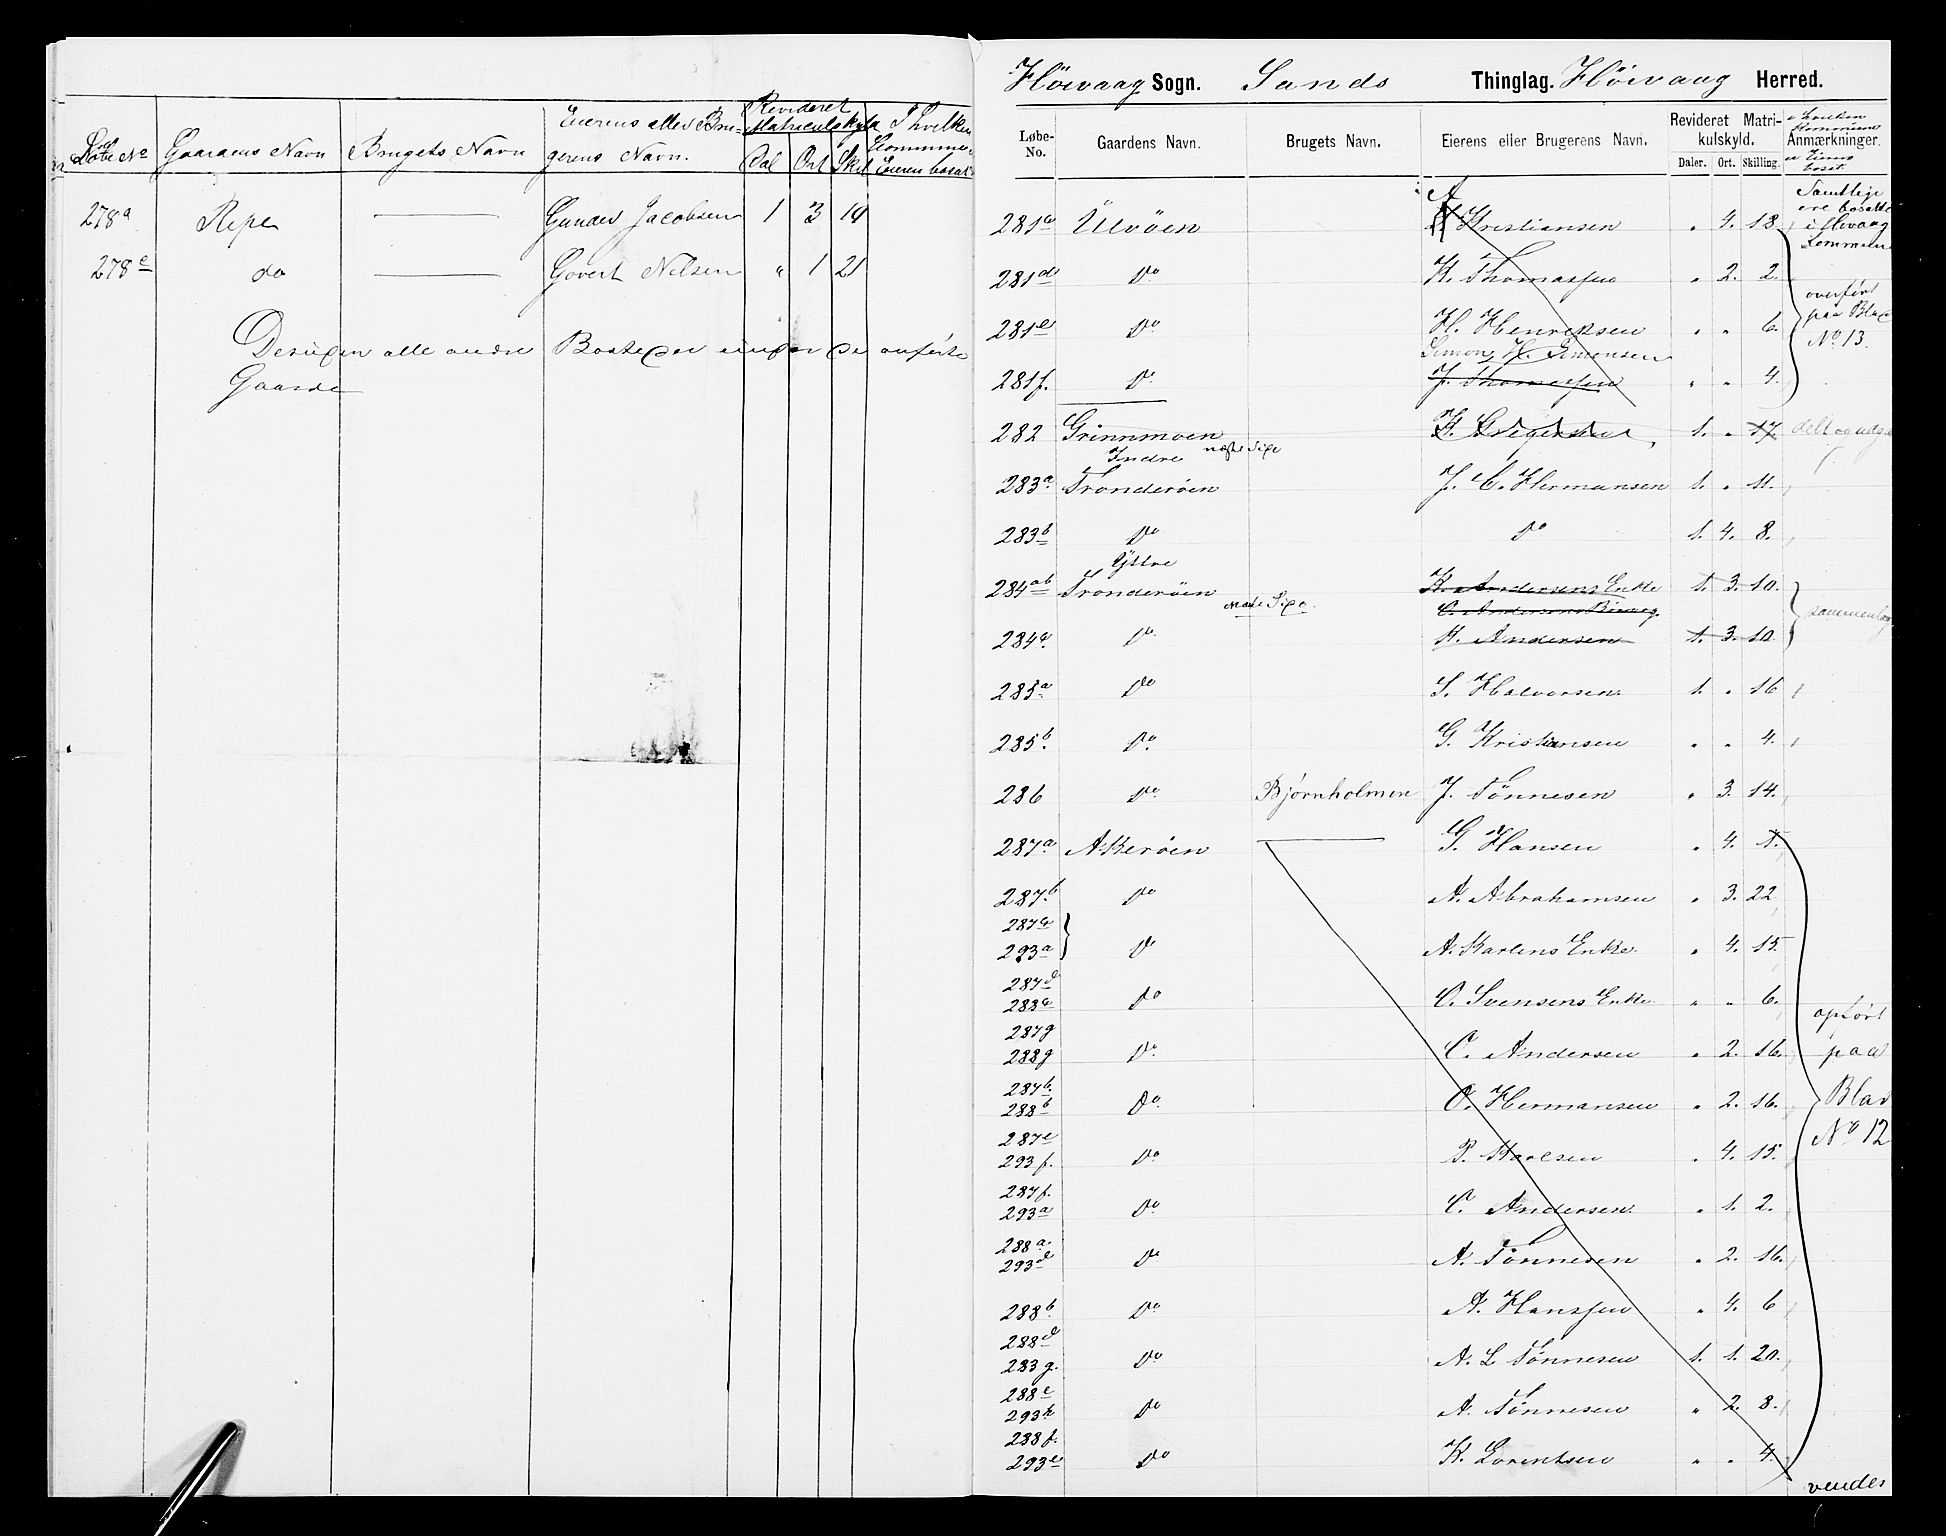 Løbe No Gaardens Navn Brugets Navn Eierens eller Bru-
gerens Navn.
Revideret
Matriculskyld
Dal Ort Skil
I hvilken
Kommune
Eieren bosat
278a Repe — Gunder Jacobsen 1 3 14
278c do — Govert Nilsen " 1 21
Desuden alle andre
Gaarde
Höivaag Sogn. Sands Thinglag. Höivaag Herred.
Løbe-No. Gaardens Navn. Brugets Navn. Eierens eller Brugerens Navn. Revideret Matri-
kulskyld.
Daler. Ort. Skilling.
Anmærkninger.
i hvilken
Kommune
er Eieren
bosat
Samtlige
ere bosatte
i Høvaag
Kommune
281 Ulvöen Kristiansen " 4. 18
281d Do K. Thomassen " 2. 2.
overført
paa Blad
No. 13.
281e Do H. Henriksen " " 6.
Simon H. Simonsen
281f. Do J. Thomassen " " 4.
282 Grinnmoen 1. " 17
Indre
283a. Tronderöen J. C. Hermansen 1. " 11.
283b Do Do 1. 4. 8.
Ystre
284ab Tronderöen K. Andersens Enke 1. 3. 10.
284c. Do H. Andersen 1. 3. 10
285a Do S. Halvorsen 1. " 16
285b. Do. G. Kristiansen " " 4.
286 Do. Bjørnholmen J. Tönnesen " 3. 14.
287a Akeröen — G. Hansen " 4. 1.
287b Do A. Abrahamsen " 3. 22
287c
293a Do A. Karlens Enke " 4. 15
287d
288c Do C. Svensens Enke " " 6.
opført
paa
Blad
No 12
287g
288g Do. C. Andersen " 2. 16.
287b.
288b Do. O. Hermansen " 2. 16.
287e
293f. Do P. Karlsen " 4. 15.
287f.
293a Do C. Andersen " 1. 2.
288a.
293d Do A. Tönnesen " 2. 16.
288b. Do A. Hanssen " 4. 6
288d
283g. Do A. L Tönnesen 1. 1. 20.
288e
293h Do A. Tönnesen " 2. 8.
288f.
293e Do K. Lorentsen " " 4.
vendes